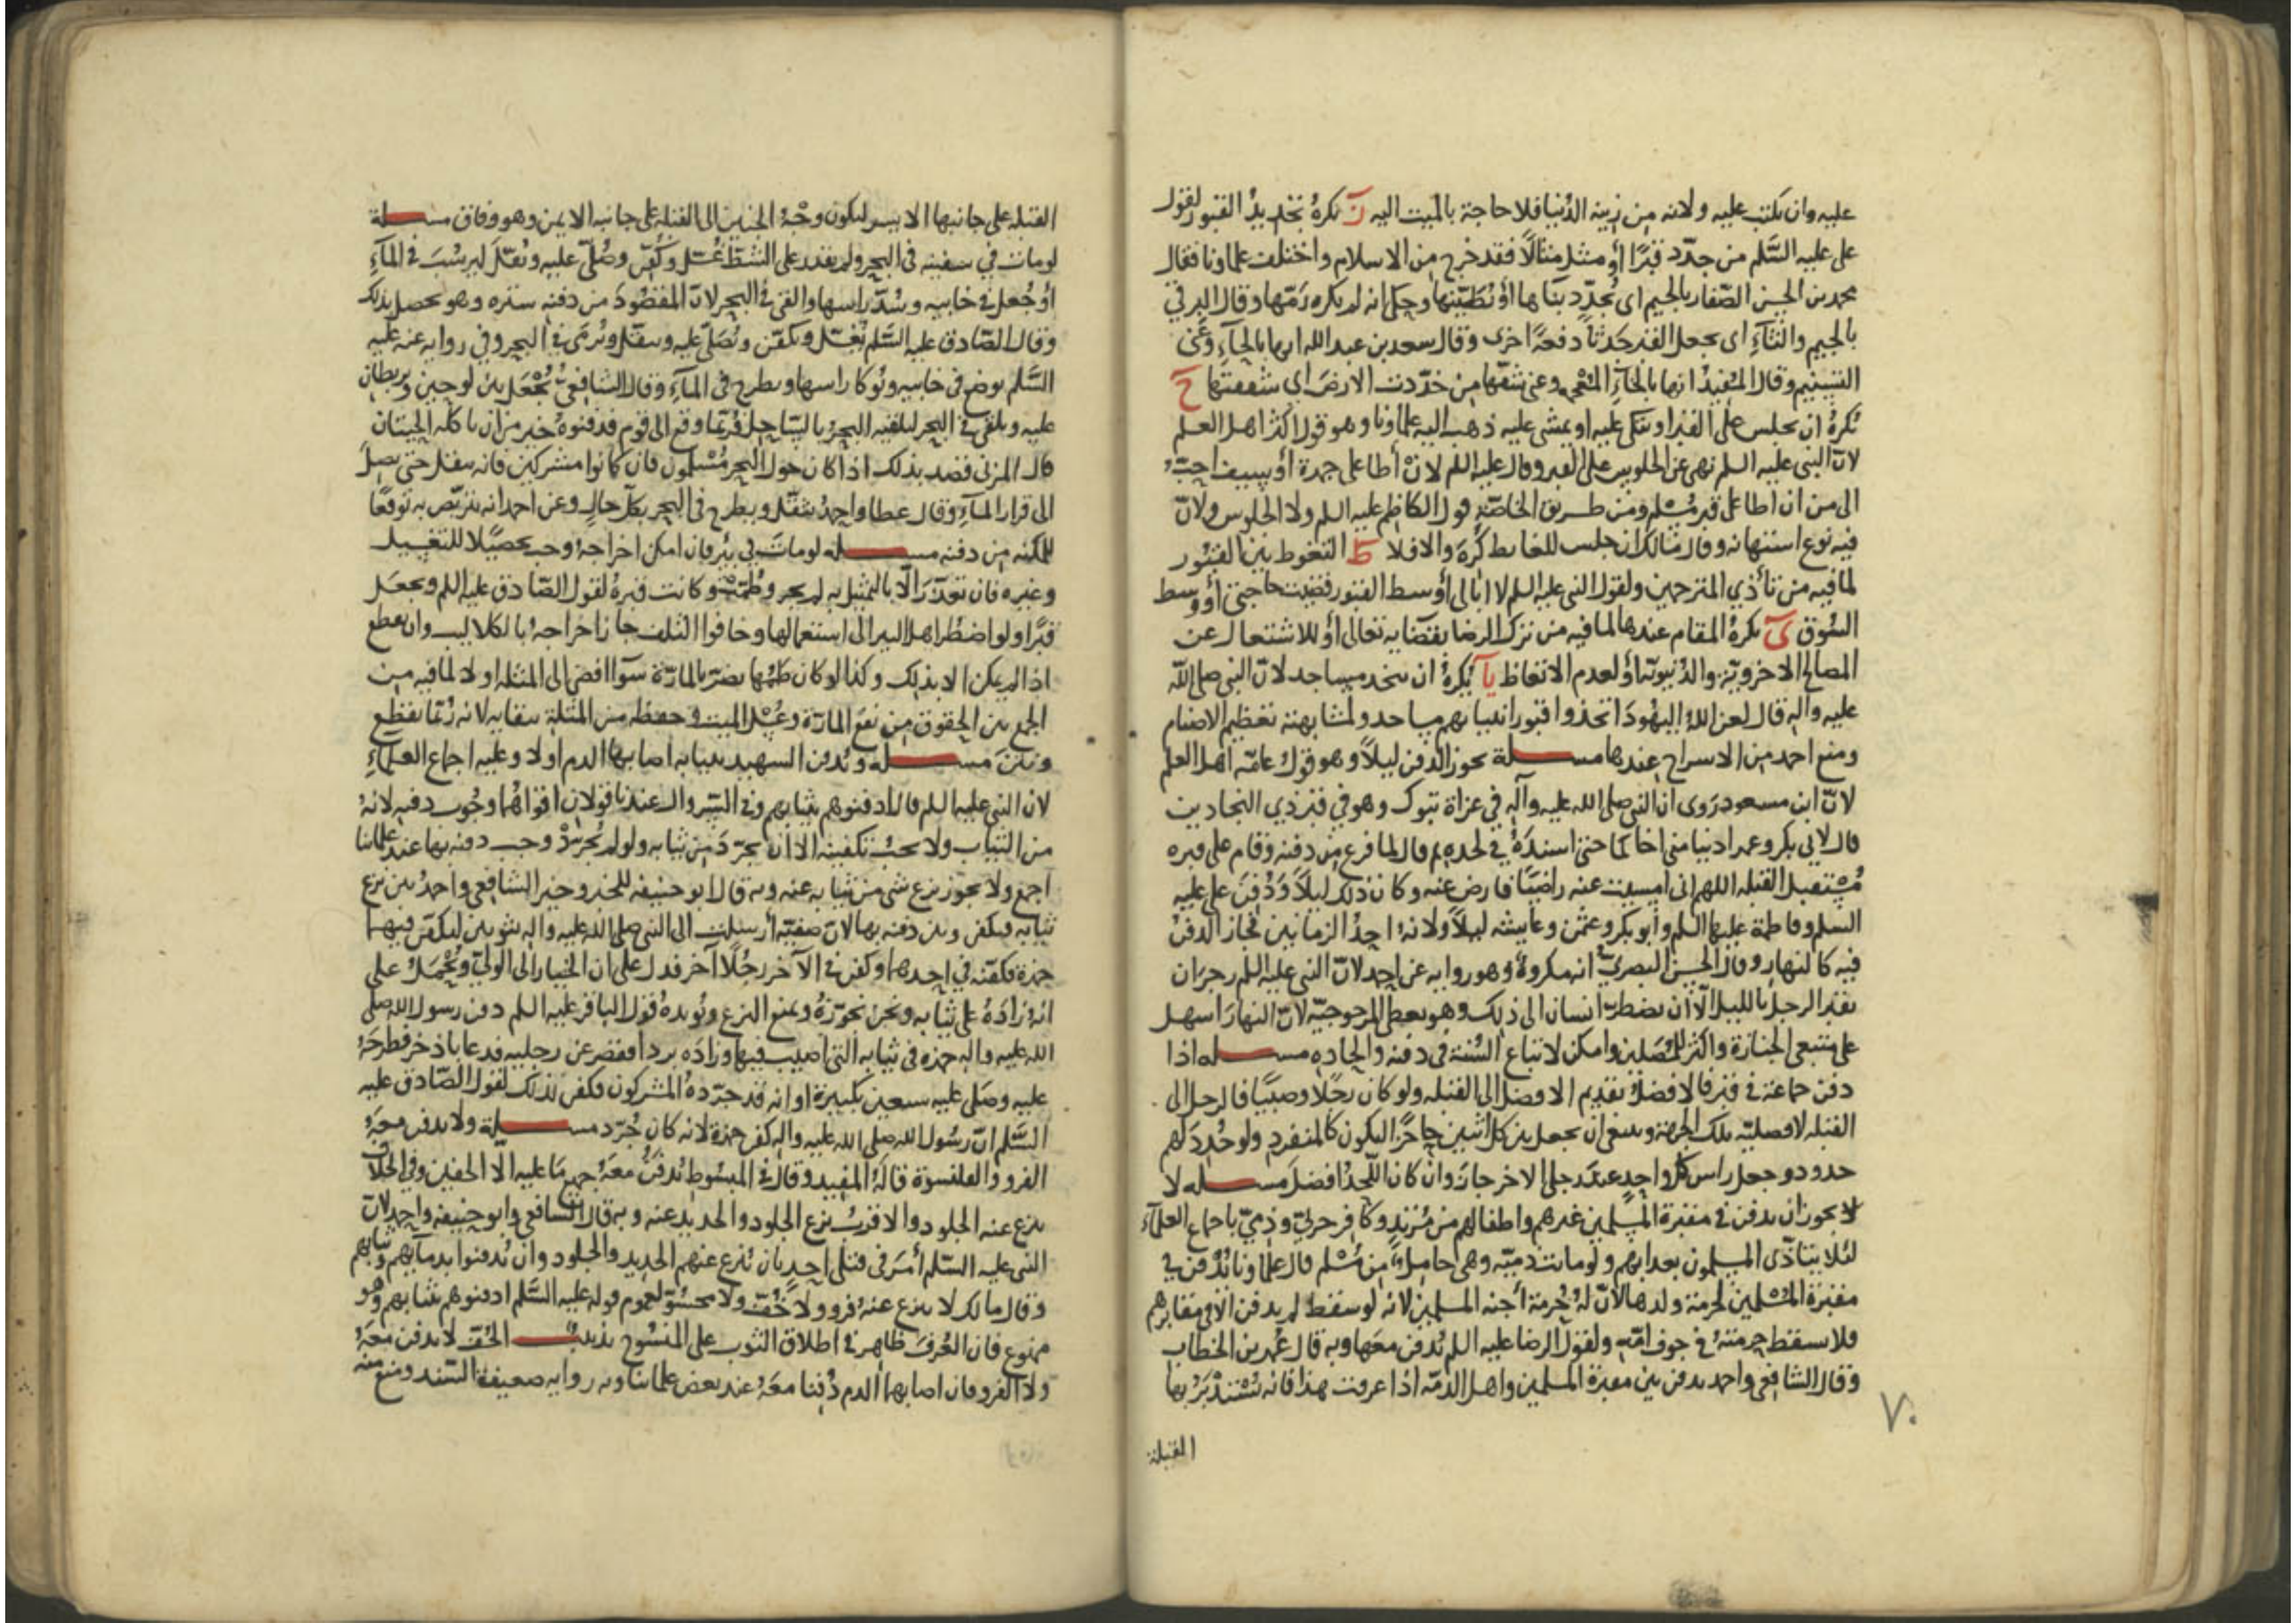 عليه وان يكتب عليه ولانه من زينة الدنيا فلا حاجة بالميت اليه ز يكره تجديد القبور لقول
علي عليه السَّلم من جدّد قبرًا أو مثل مثالًا فقد خرج من الاسلام واختلف علماونا فقال
محمد بن الحسن الصّفار بالجيم اى يُجدّد بناها أو تطيّنها وحكى انه لم يكره رمّها وقال البرقي
بالجيم والثآءِ اى يجعل القبر جدثًا دفعةً اخرى وقال سعد بن عبد الله انها بالحآءِ وعنى
التسنيم وقال المفيد انها بالخآءِ المعجمه وعنى شقّها من خدّدت الارضَ اى شققتها ح
يُكرهُ ان يجلس على القبر او يتكى عليه او يمشى عليه ذهب اليه علماونا وهو قول اكثر اهل العلم
لانّ النبى عليه السلم نهى عن الجلوس على القبر وقال عليه السلم لانْ أطا على جمرة أو سيف احبّ
الى من ان اطا على قبر مُسْلم ومن طريق الخاصّة قول الكاظم عليه السلم ولا الجلوس ولانّ
فيه نوع استهانه وقال مالك ان جلس للغايط كُرِهَ والا فلا ط التغوط بين القبُور
لما فيه من تأذي المترحمين ولقول النبى عليه السلم لا ابالى أوسط القبور قضيت حاجتى أو وسط
السُوق ى يكرهُ المقام عندها لما فيه من ترك الرضا بقضايه تعالى أو للاشتغال عن
المصالح الاخرويّة والدُنيويّة أو لعدم الاتعاظ يا يُكرهُ ان يتخد مساجد لانّ النبى صلى اللّه
عليه واله قال لعن اللهُ اليَهُودَ اتخذوا قبور انبيايهم مساجد ولمشابهته تعظيم الاصنام
ومنع احمد من الاسراج عندها مسلة يجوز الدفن ليلًا وهو قول عامّه اهل العلم
لانّ ابن مسعود رَوى ان النبى صلى الله عليه وآله في غزاة تبوك وهو في قبر ذي النجادين
قال لابى بكر وعمر ادنيا منى اخاكما حتى اسندَهُ في لحده ثم قال لما فرغ من دفنه وقام على قبره
مُسْتقبل القبله اللهم انى امسيت عنه راضيًا فارض عنه وكان ذلك ليلًا ودُفِنَ على عليه
السلم وفاطمة عليها السلم وابو بكر وعثمن وعايشه ليلًا ولانهُ احدُ الزمانين فجاز الدفنُ
فيه كالنهار وقال الحسن البصريّ انه مكروهٌ وهو روايه عن احمد لانّ النبى عليه السلم زجر ان
يقبر الرجل بالليل الّا ان يضطرّ انسان الى ذلك وهو يعطى المرجوحيّه لانّ النهارَ اسهل
على متبعى الجنازة واكثر للمُصَلين وامكن لاتباع السُنة فى دفنه والحاده مسله اذا
دفن جماعة فى قبر فالافضلُ تقديم الافضل الى القبله ولو كان رجُلًا وصبيًا فالرجل الى
القبله لافضليّه تلك الجهة وينبغى ان يجعل بين كل اثنين حاجزًا ليكون كالمنفرد ولو خُدِّدَ لهم
خدود وجعل راس كلّ واحدٍ عند رجلى الاخر جازَ وان كان اللّحدُ افضل مسله لا
لا يجوز ان يدفن فى مقبرة المسلمين غيرهم واطفالهم من مُرْتدٍ وكافر حربيّ وذميّ باجماع العلمآءِ
لئلا يتأذّى المسلمون بعذابهم ولو ماتت ذميّه وهى حامل من مُسْلم قال علماونا تُدفن فى
مقبرة المُسْلمين لحرمة ولدها لانّ لهُ حُرمة أجنه المسلمين لانه لو سقط لم يدفن الا فى مقابرهم
فلا يسقط حرمتهُ فى جوف امّه ولقول الرضا عليه السلم يُدفن معها وبه قال عُمر بن الخطاب
وقال الشافعى واحمد يدفن بين مقبرة المسلمين واهل الذمّه اذا عرفت هذا فانه يُسْتدْبَرُ بها
٧٠
القبلة
القبله على جانبها الايسر ليكون وجْهُ الجنين الى القبله على جانبه الايمن وهو وفاق مسلة
لو مات في سفينه فى البحر ولم يقدر على الشطّ غُسّل وكُفّن وصُلّى عليه وثُقّل ليرسُبَ فى المآءِ
أو جُعل فى خابيه وسُدّ راسها والقى فى البحر لانّ المقصُودَ من دفنه ستره وهو يحصل بذلك
وقال الصّادق عليه السَّلم يُغسّل ويكفّن ويُصَلّى عليه ويثقّل ويُرمَى فى البحر وفي روايه عنه عليه
السَّلم يوضع فى خابيه ويُوكا راسها ويطرح فى المآءِ وقال الشافعى يُجْعَل بين لوحين ويربطان
عليه ويلقى فى البحر ليلقيه البحرُ بالسّاحل فرُبّما وقع الى قوم فدفنوهُ خير من ان ياكله الحيتان
قال المزنى قصد بذلك اذا كان حول البحر مُسْلمون فان كانوا مشركين فانه يثقل حتى يصلَ
الى قرار المآءِ وقال عطا واحمدُ يثقّل ويطرح فى البحر بكلّ حالٍ وعن احمد انه يتربّص به توقعًا
للمكنه من دفنه مسله لو مات فى بئر فان امكن اخراجهُ وجب تحصيلًا للتغسيل
وغيره فان تعذّرَ الّا بالتمثيل به لم يجز وطُمّت وكانت قبرهُ لقول الصّادق عليه السلم ويجعَل
قبرًا ولو اضطُر اهل البير الى استعمالها وخافوا التلف جاز اخراجهُ بالكلاليب وان تقطع
اذا لم يكن الا بذلك وكذا لو كان طمّها يضرّ بالمارّة سوآ افضى الى المثله او لا لما فيه من
الجمع بين الحقوق من نفع المارّة وغُسْل الميت وحفظه من المُثلة ببقايه لانه رُبّما تقطّع
ونتن مسله ويُدفن الشهيد بثيابه اصابها الدم اولا وعليه اجماع العلمآءِ
لان النبى عليه السلم قال ادفنوهم بثيابهم وفى السّروال عندنا قولان اقواهُما وجُوب دفنه لانهُ
من الثياب ولا يجبُ تكفينه الا ان يجرّدَ من ثيابه ولو لم يُجرّدْ وجب دفنه بها عند علمائنا
اجمع ولا يجوز نزع شى من ثيابه عنه وبه قال ابو حنيفه للخبر وخيّر الشافعى واحمدُ بين نزع
ثيابه فيكفن وبين دفنه بها لان صفيّه أرسلت الى النبى صلى الله عليه واله ثوبين ليكفّن فيهما
حمزة فكفّنه في احدهما وكفن فى الآخر رجُلًا آخر فدل على ان الخيار الى الولىّ ويُحْمَل على
انهُ زادَهُ على ثيابه ونحن نجوّزهُ ونمنع النزع ويُويدهُ قول الباقر عليه السلم دفن رسول الله صلى
الله عليه واله حمزه فى ثيابه التى اصيب فيها وزاده بردا فقصر عن رجليه فدعا باذخر فطرحهُ
عليه وصَلى عليه سبعين تكبيرة او انه قد جرّدهُ المشركون فكفن لذلك لقول الصّادق عليه
السَّلم انّ رسُول الله صلى الله عليه واله كفن حمزة لانه كان جُرّد مسلة ولا يدفن معَهُ
الفرو والقلنسوة قالهُ المفيد وقال فى المبسُوط يُدفنُ معَهُ جميع مَا عليه الّا الخفين وفى الخلاف
ينزع عنه الجلود والاقربُ نزع الجلود والحديد عنه وبه قال الشافعى وابو حنيفه واحمد لانّ
النبى عليه السّلم أمَرَ فى قتلى احدٍ بان يُنزع عنهم الحديد والجلود وان يُدفنوا بدمآيهم وثيابهم
وقال مالك لا ينزع عنهُ فرو ولا خُفّ ولا محشُوّ لعموم قوله عليه السَّلم ادفنوهم بثيابهم وهُو
ممنوع فان العُرفَ ظاهر فى اطلاق الثوب على المنسُوج تذنيب الخُفّ لا يدفن معَهُ
ولا الفرو فان اصابهما الدم دُفِنا معَهُ عند بعض علمائنا وبه روايه ضعيفة السّند ومنع منه